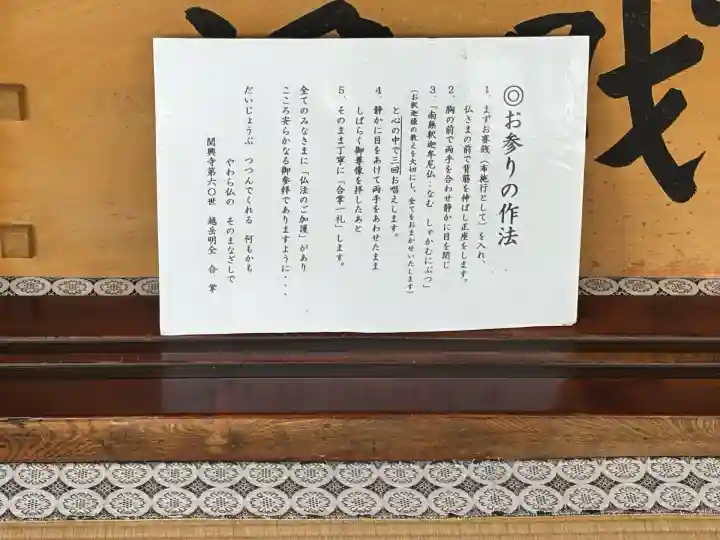 ◎お参りの作法
1、まずお賽銭（布施行として）を入れ、
仏さまの前で背筋を伸ばし正座をします。
2、胸の前で両手を合わせ静かに目を閉じ
3、「南無釈迦牟尼仏：なむ しゃかむにぶつ」
（お釈迦様の教えを大切にし、全てをおまかせいたします）
と心の中で三回お唱えします。
4、静かに目をあけて両手をあわせたまま
しばらく御尊像を拝したあと
5、そのまま丁寧に「合掌一礼」します。
全てのみなさまに「仏法のご加護」があり
こころ安らかなる御参拝でありますように・・・
だいじょうぶ つつんでくれる 何もかも
やわら仏の そのまなざしで
関興寺第六〇世 越岳明全 合掌